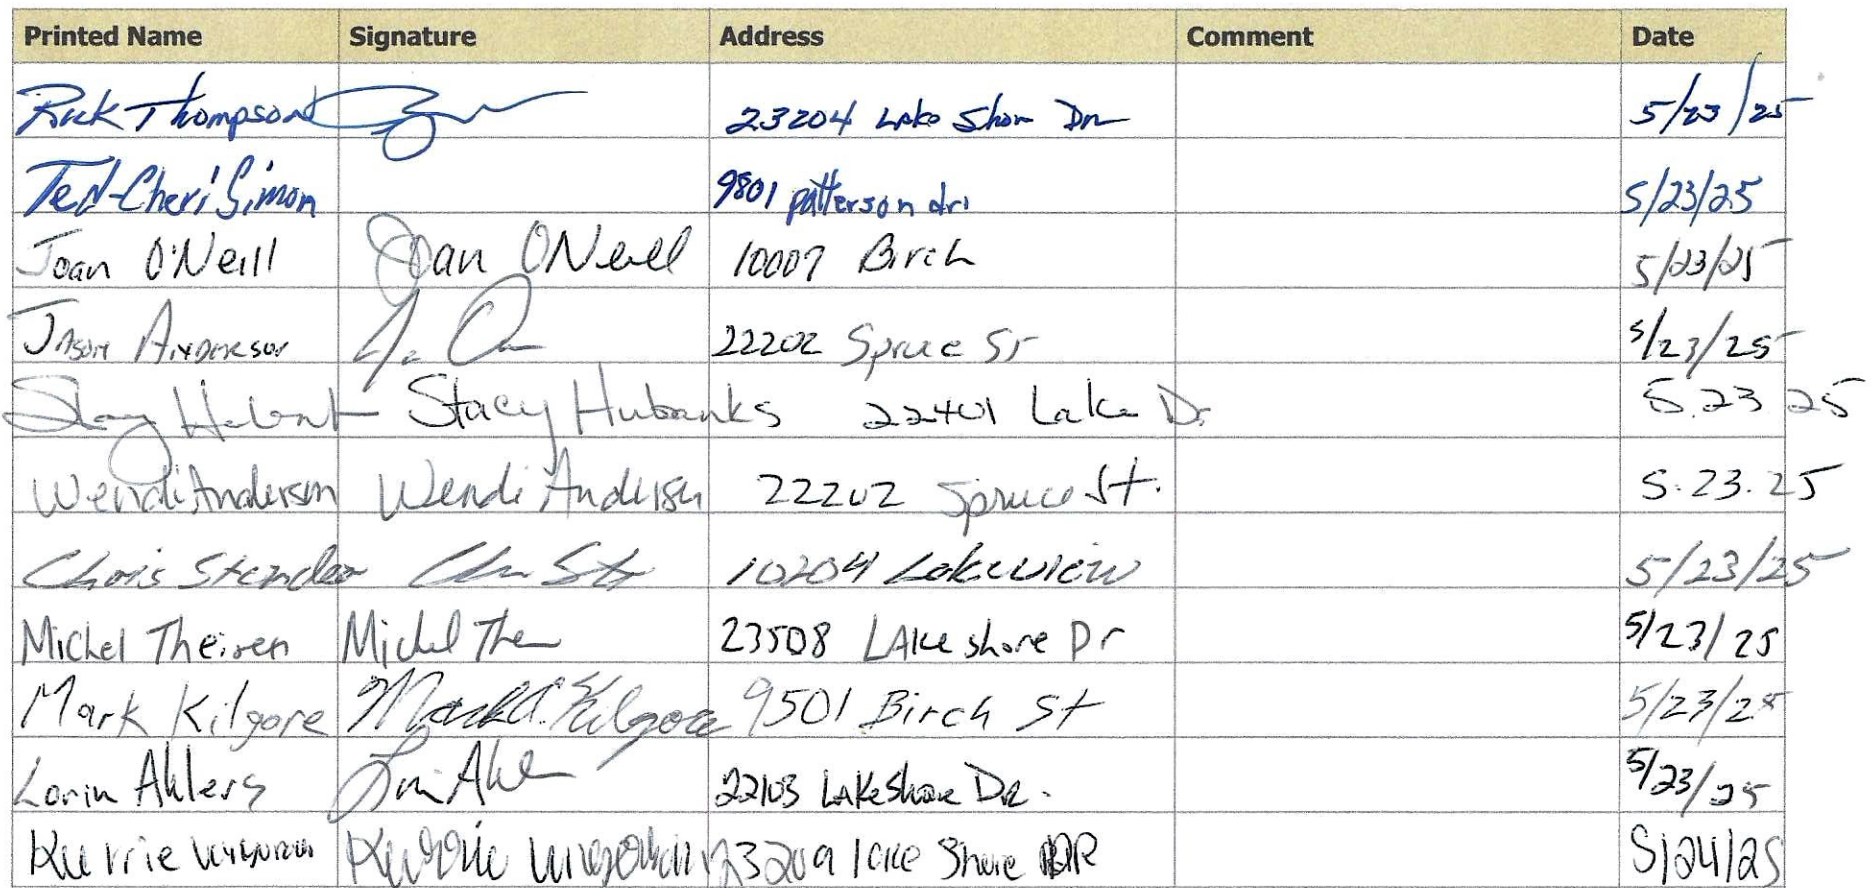 Printed Name Signature Address Comment Date
Rick Thompson 23204 Lake Shore Dr 5/23/25
Ted-Cheri Simon 9801 patterson dr 5/23/25
Joan O'Neill Joan ONeill 10007 Birch 5/23/25
Jason Anderson 22202 Spruce St 5/23/25
Stacy Hubanks 22401 Lake Dr 5.23 25
Wendi Anderson Wendi Anderson 22202 Spruce St. 5.23.25
Chris Stender 10204 Lakeview 5/23/25
Michel Theisen Michel 23508 LAke shore Dr 5/23/25
Mark Kilgore Mark A. Kilgore 9501 Birch St 5/23/25
Lorin Ahlers 22103 LAKeShore DR. 5/23/25
23209 lake Shore DR 5/24/25